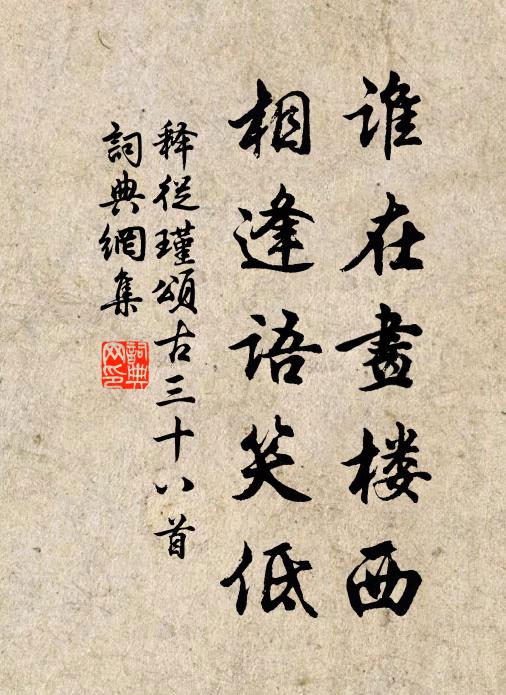 谁在畫楼西
相逢语笑低
释從瑾頌古三十八首
詞典網集
詞典
网印